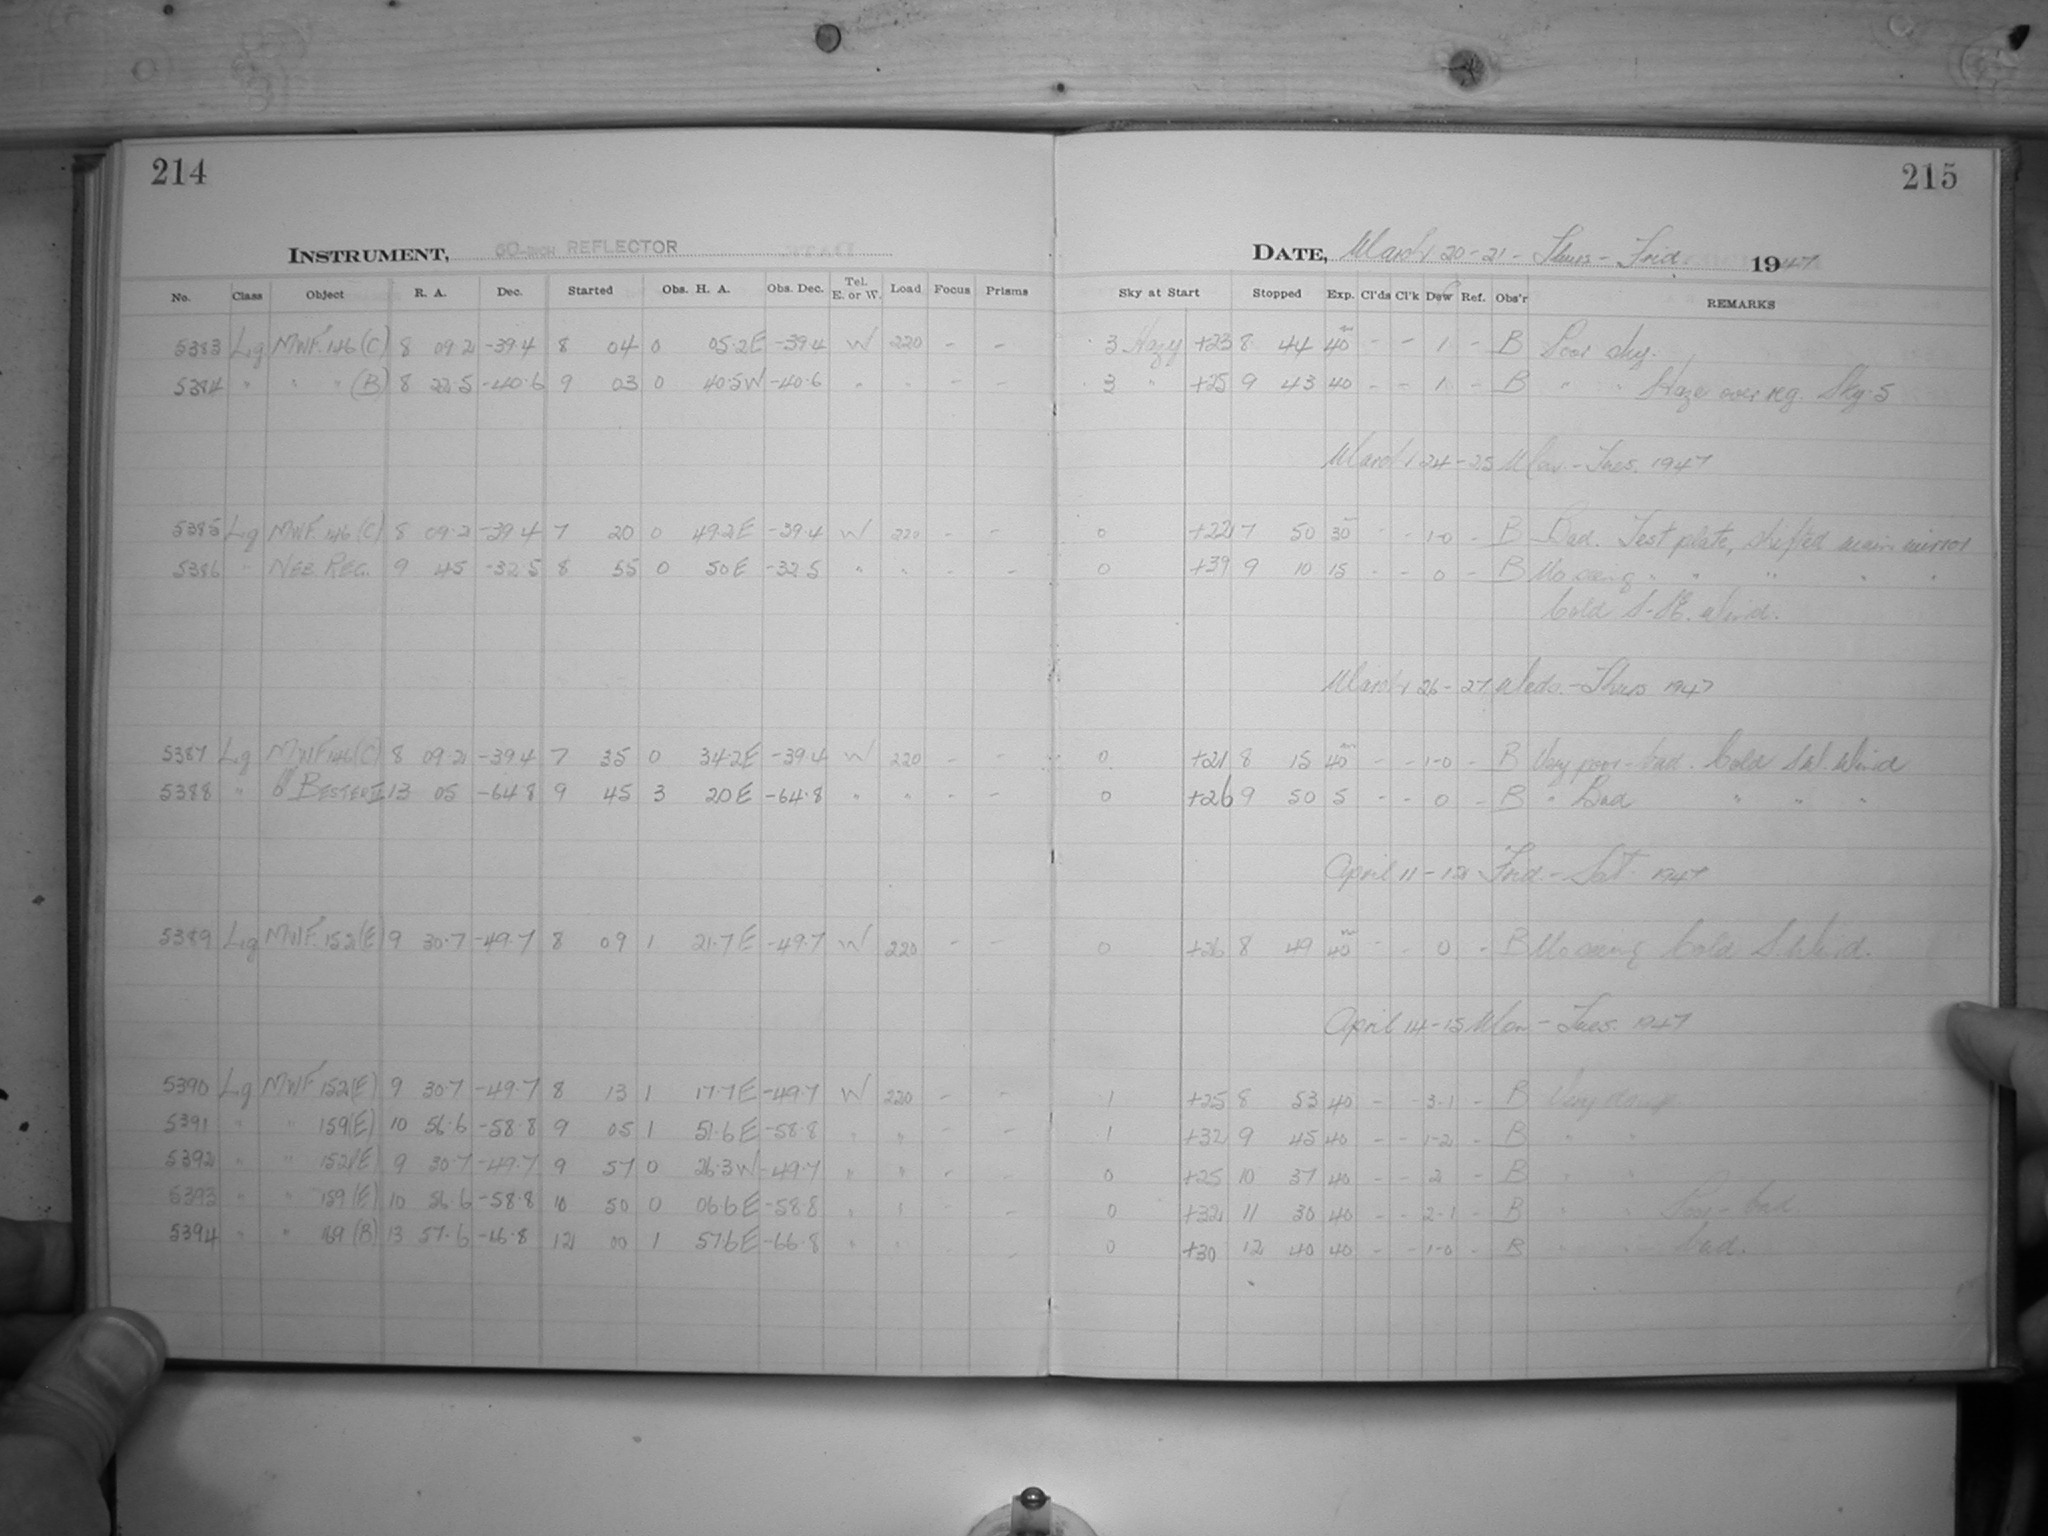 214
INSTRUMENT, 60-INCH REFLECTOR
No. Class Object R. A. Dec. Started Obs. H. A. Obs. Dec. Tel. E. or W. Load Focus Prisms
5383 Lg MWF. 146 (C) 8 09.2 -39.4 8 04 0 05.2E -39.4 W 220 - -
5384 " " " (B) 8 22.5 -40.6 9 03 0 40.5W -40.6 " " - -
5385 Lg MWF. 146 (C) 8 09.2 -39.4 7 20 0 49.2E -39.4 W 220 - -
5386 " NEB. REG. 9 45 -32.5 8 55 0 50E -32.5 " " - -
5387 Lg MWF 146 (C) 8 09.2 -39.4 7 35 0 34.2E -39.4 W 220 - -
5388 " BESTER II 13 05 -64.8 9 45 3 20E -64.8 " " - -
5389 Lg MWF. 152 (E) 9 30.7 -49.7 8 09 1 21.7E -49.7 W 220 - -
5390 Lg MWF 152(E) 9 30.7 -49.7 8 13 1 17.7E -49.7 W 220 - -
5391 " " 159(E) 10 56.6 -58.8 9 05 1 51.6E -58.8 " " - -
5392 " " 152(E) 9 30.7 -49.7 9 57 0 26.3W -49.7 " " - -
5393 " " 159 (E) 10 56.6 -58.8 10 50 0 06.6E -58.8 " " - -
5394 " " 169 (B) 13 57.6 -66.8 12 00 1 57.6E -66.8 " " - -
215
DATE, March 20-21 - Thurs - Frid. 1947
Sky at Start Stopped Exp. Cl'ds Cl'k Dew Ref. Obs'r REMARKS
3 Hazy +23 8 44 40 - - 1 - B Poor sky.
3 " +25 9 43 40 - - 1 - B " " Haze over reg. Sky 5
March 24-25 Mon. - Tues. 1947
0 +22 7 50 30 - - 1-0 - B Bad. Test plate, shifted main mirror
0 +39 9 10 15 - - 0 - B No seeing " " " " "
Cold S-SE. Wind.
March 26-27 Weds. - Thurs 1947
0 +21 8 15 40 - - 1-0 - B Very poor - bad. Cold SW. Wind
0 +26 9 50 5 - - 0 - B " Bad " " "
April 11-12 Frid. - Sat. 1947
0 +26 8 49 40 - - 0 - B No seeing Cold S. Wind.
April 14-15 Mon - Tues. 1947
1 +25 8 53 40 - - 3-1 - B Very
1 +32 9 45 40 - - 1-2 - B " "
0 +25 10 37 40 - - 2 - B " "
0 +32 11 30 40 - - 2-1 - B " " Poor - bad.
0 +30 12 40 40 - - 1-0 - B " " bad.